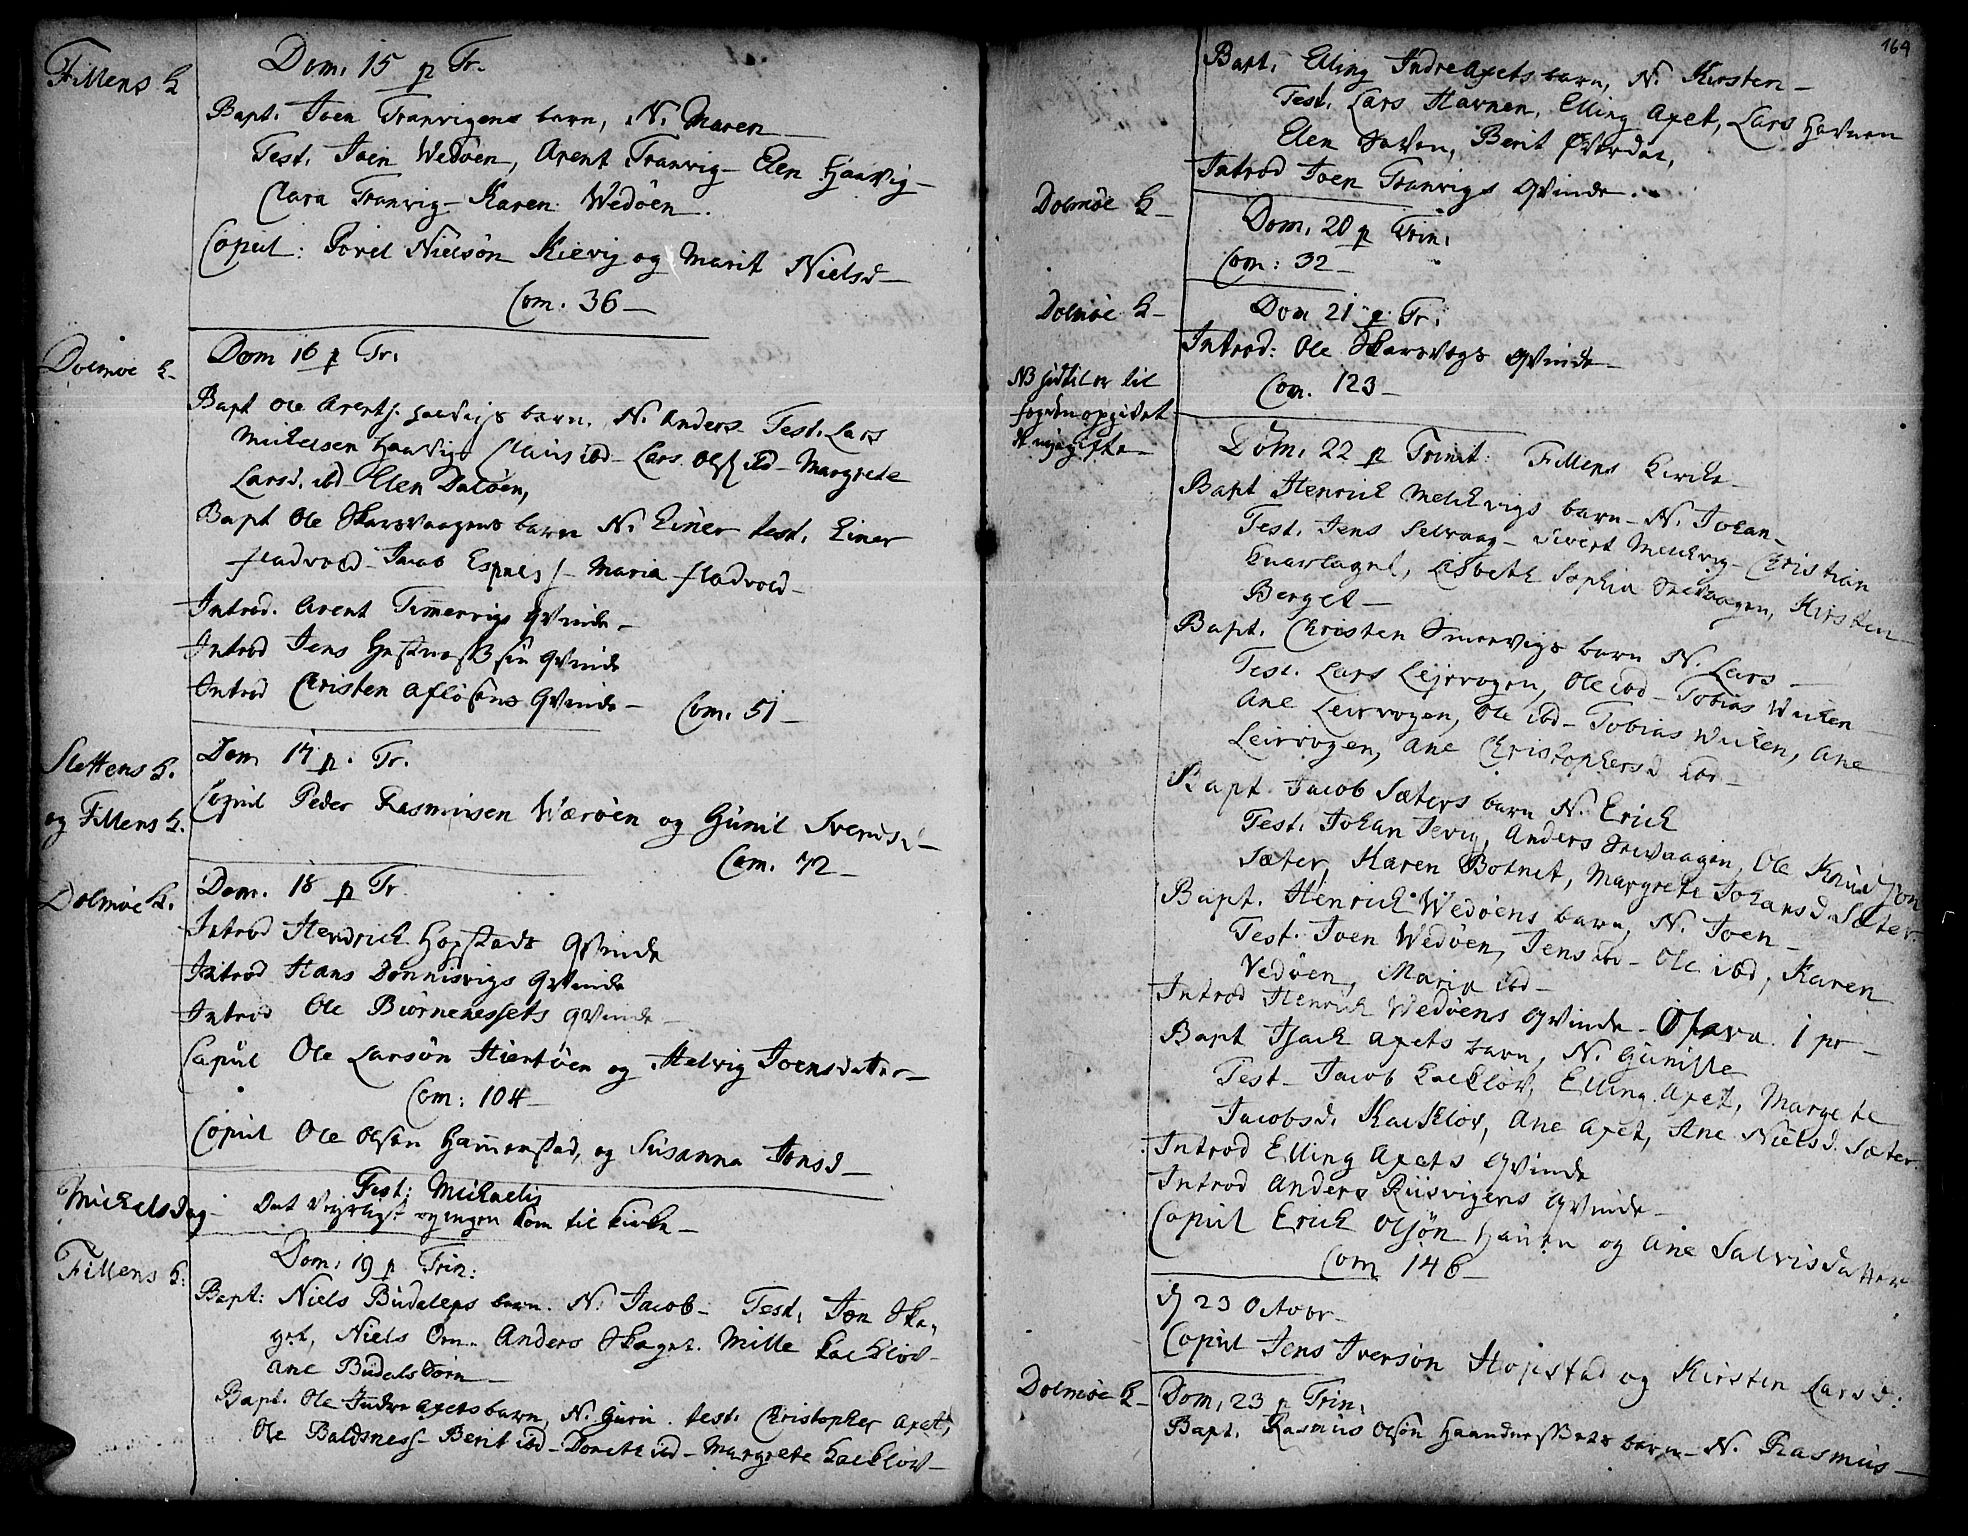 Fillens K
Dom. 15 p Tr.
Bapt. Joen Tranvigens barn, N. Maren
Test. Joen Wedøen, Arent Tranvig - Elen Haavig -
Clara Tranvig - Karen Wedøen.
Copul: Povel Nielsøn Kievig og Marit Nielsd -
Com. 36 -
Dolmøe K.
Dom 16 p Tr.
Bapt Ole Arents. barn, N. Anders - Test. Lars
Mickelsen Haavigs Claus ibd - Lars Ols. ibd - Margrete
Larsd. ibd Elen Daløen,
Bapt Ole Skarsvaagens barn N. Einer test. Einer
fladvold - Jacob Espnes - Maria fladvold -
Introd. Arent Timervigs qvinde -
Introd Jens qvinde
Introd Christen Afløsens qvinde - Com. 51 -
Slettens K.
og Fillens K.
Dom 17 p. Tr.
Copul Peder Rasmusen Wærøen og Gunil Svensd -
Com. 72 -
Dolmøe K.
Dom. 18 p Tr.
Introd Hendrich Hopstads qvinde
Introd Hans Dønnisvigs qvinde
Introd Ole Biørnenessets qvinde -
Copul Ole Larsøn Hiertøen og Helvig Joensdatter -
Com: 104 -
Copul Ole Olsen Hammerstad, og Susanna Jonsd -
Fest: Michaelis
Mickelsdag - Ont Vejrligt og ingen kom til kirke -
Fillens K:
Dom. 19 p Trin:
Bapt: Niels Budalens barn. N. Jacob - Test. Jon Ska-
get, Niels Orn - Anders Skaget. Mille Kalkløv -
ane Budalsdørn -
Bapt. Ole Indre Axets barn, N. Guru. test. Christopher Axet,
Ole Baldsness - Berit ibd - Dorete ibd - Margrete Kalkløv -
164
Bapt. Elling Indre Axets barn, N. Kirsten -
Test. Lars Havnen, Elling Axet, Lars Havnen
Elen Berit Øverdal,
Introd Joen Tranvigs qvinde -
Dolmøe K -
Dom. 20 p Trin.
Com: 32 -
Dolmøe K -
Dom 21 p. Tr.
Introd: Ole Skarsvogs qvinde -
Com. 123 -
NB hidtil er til
fogden opgivet
de nygifte -
Dom. 22 p Trinit: Fillens Kircke -
Bapt Henrich Melckvigs barn - N. Johan -
Test. Jens Selvaag - Sivert Melckvig - Christian
Lisbeth Sophia Kirsten
Berget -
Bapt. Christen Smervigs barn N. Lars -
Test. Lars Lejrvogen, Ole ibd - Tobias Wicken
Ane Leirvogen, Ole ibd - Tobias Wicken, Ane
Leirvogen, Ane Christophersd ibd -
Bapt. Jacob Sæters barn N. Erich
Test. Johan Anders Ole Knud Jon
Sæter, Karen Botnet, Margrete Johansd. Sæter.
Bapt. Henrich Wedøens barn, N. Joen -
Test. Joen Wedøen, Jens ibd - Ole ibd, Karen
Vedøen, Maria ibd -
Introd Henrich Wedøens qvinde - 1 pr -
Bapt Isach Axets barn, N. Gunille
Test - Jacob Kalkløv, Elling Axet, Margrete
Jacobsd. Kalkløv, Ane Axet, Ane Nielsd. Sæter
Introd Elling Axets qvinde
Introd Anders Riisvigens qvinde -
Copul Erich Olsøn og Ane Salvisdatter
Com 146 -
d 23 Octobr -
Copul Jens Iversøn Hopstad og Kirsten Larsd:
Dolmøe K -
Dom. 23 p Trin.
Bapt. Rasmus Olsøn barn - N. Rasmus -